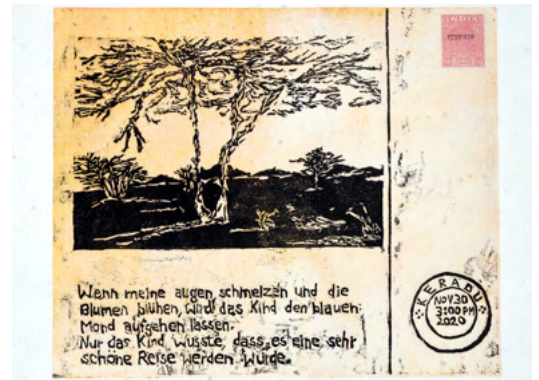 INDIA
Wenn meine augen schmelzen und die
Blumen blühen, wird das Kind den blauen
Mond aufgehen lassen.
Nur das Kind wusste, dass es eine sehr
schöne Reise werden wurde.
KERADU
NOV.30
3:00 PM
2020